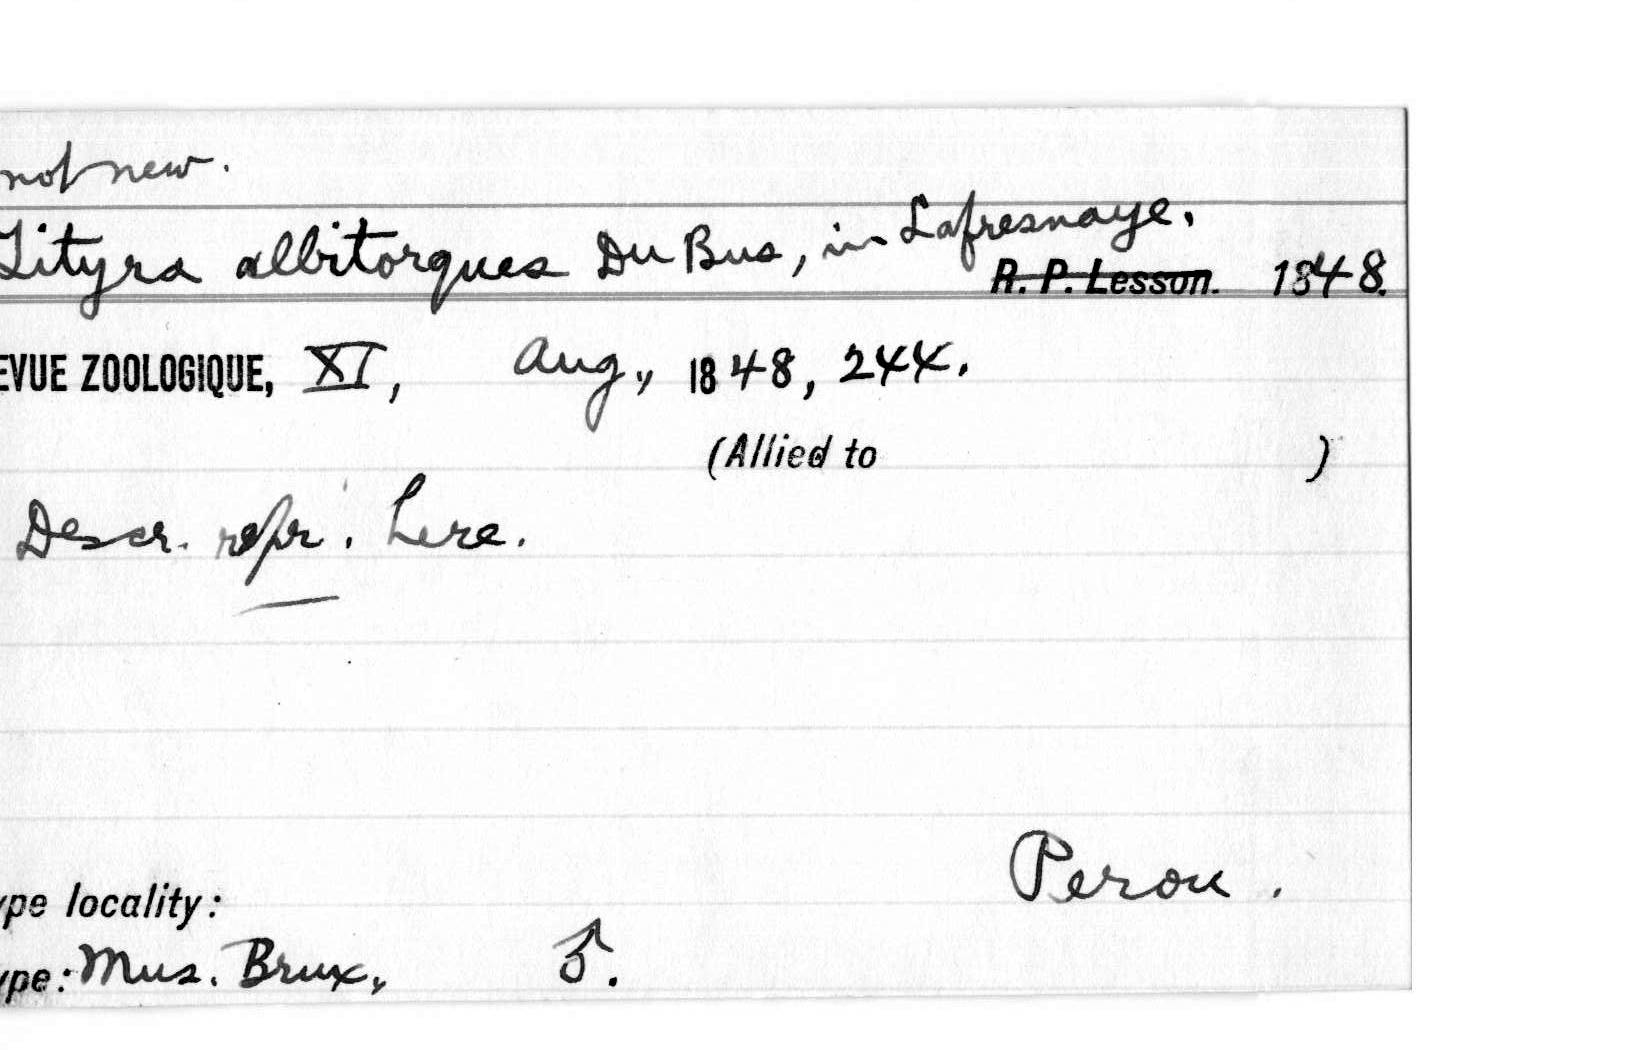 not new.
Tityra albitorques Du Bus, in Lafresnaye.
R. P. Lesson. 1848.
EVUE ZOOLOGIQUE, XI, Aug., 1848, 244.
(Allied to )
Descr. repr. here.
Perou.
ype locality:
ype: Mus. Brux., ♂.